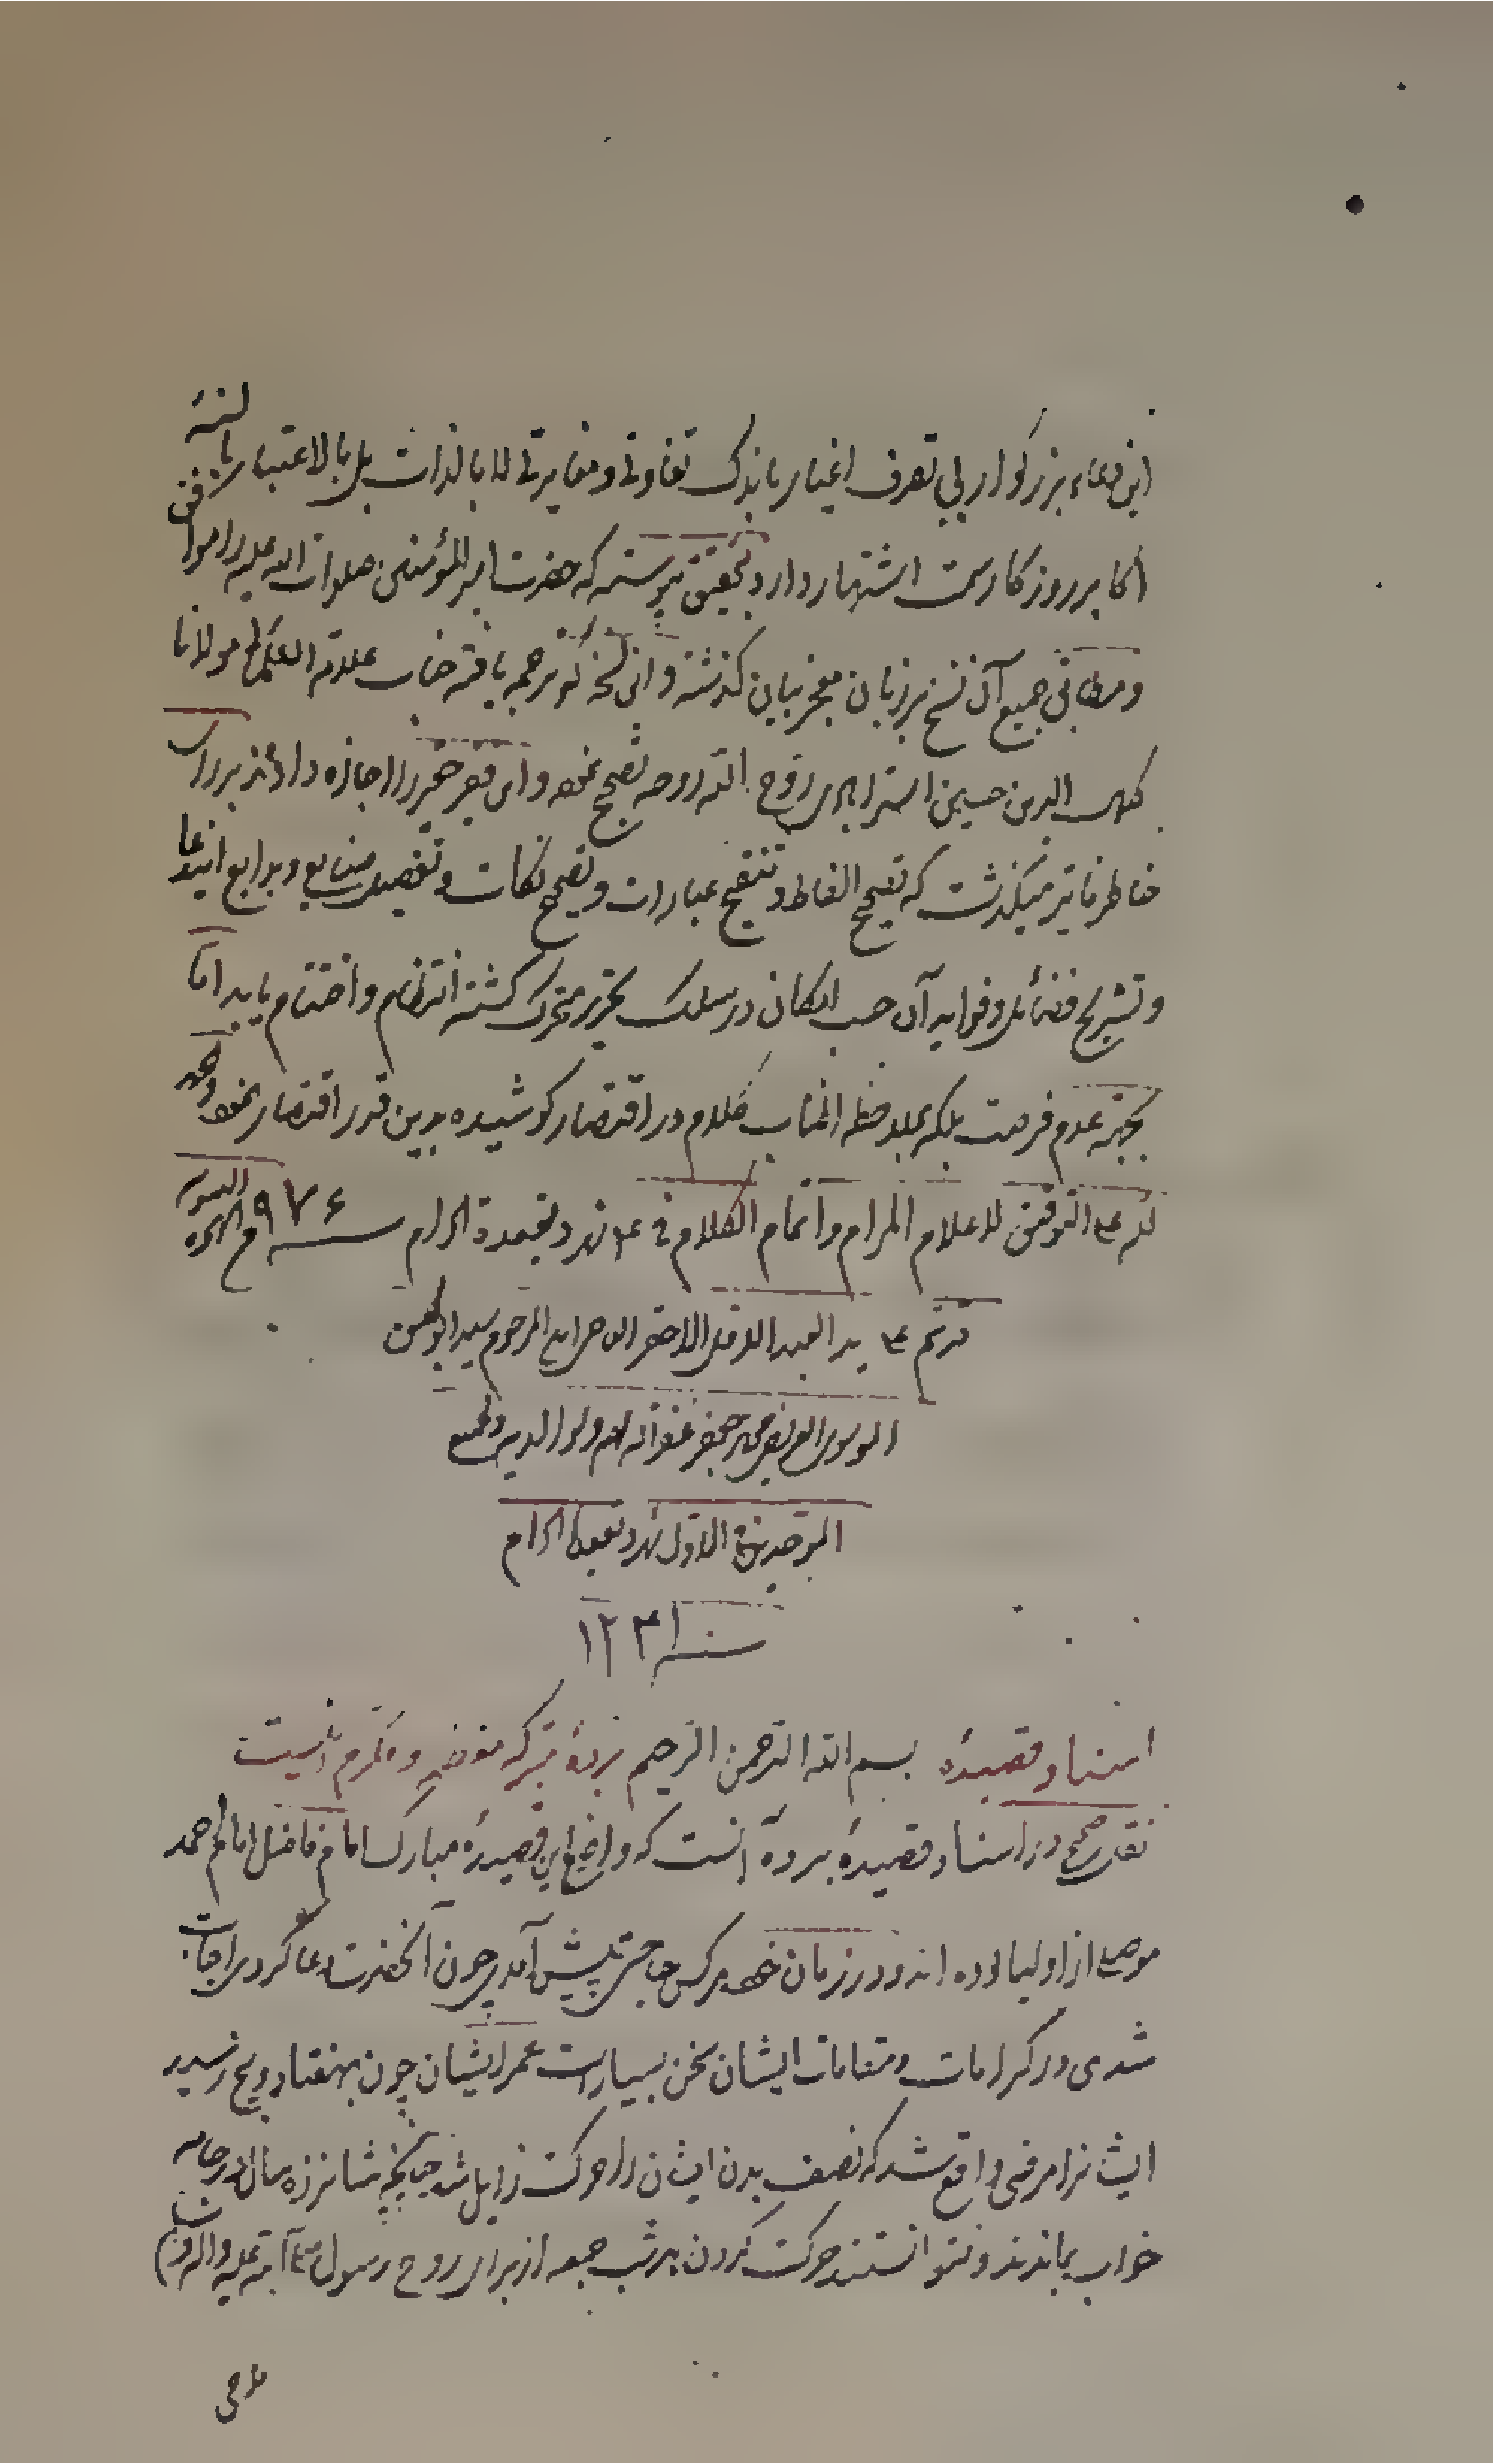 این دعاء بزرگوار بی تصرف اغیار باندک تفاوتی و مغایرتی لا بالذات بل بالاعتبار بالسنهٔ
اکابر روزکارست اشتهار دارد و بتحقیق پیوسته که حضرت امیرالمؤمنین صلوات الله علیه را موافق
ومطابق جمیع آن نسخ بر زبان معجز بیان کذشته و این نسخه که ترجمه یافته جناب علامة العلمائی مولانا
الدین حسین استرابادی روح الله روحه تصحیح نموده و این فقیر حقیر را اجازه دادند برداس
خاطر فاتر میکذشت که تصحیح الفاظ و تنقیح عبارات و توضیح نکات و تفصیل صنایع و بدایع این دعا
و تشریح فضائل و فواید آن حسب الامکان در سلک تحریر منخرط کشته انتظام و اختتام یابد اما
بجهة عدم فرصت بلکه بملاحظه اطناب کلام در اقتصار کوشیده بدین قدر اقتصار نموده
لله علی التوفیق لاعلام المرام و اتمام الکلام فی شهر ذیقعدة الحرام سنه ۹۷۶ الهجرة
قد تم علی ید العبد الاقل الاحقر ابن المرحوم سید ابوالحسن
الموسوی محمد جعفر غفر الله لهم و لوالدیه و لجمیع
الموحدین الاول شهر ذیقعدة الحرام
سنه ۱۲۳۱
اسناد قصیدهٔ بسم الله الرحمن الرحیم بردهٔ متبرکه و مکرم اینست
نقل صحیح در اسناد قصیدهٔ برده آنست که واضع این قصیدهٔ مبارک امام فاضل امام احمد
موصلی از اولیا بوده اند و در زمان خود هرکس حاجتی پیش آمدی چون آنحضرت دعا کردی اجابت
شدی و در کرامات و مقامات ایشان سخن بسیارست عمر ایشان چون بهفتاد و پنج رسید
ایشانرا مرضی واقع شد که نصف بدن ایشان را حرکت زایل شد چنانچه شانزده سال در جامه
خواب بماندند و نتوانستند حرکت کردن هر شب جمعه از برای روح رسول صلی الله علیه و آله